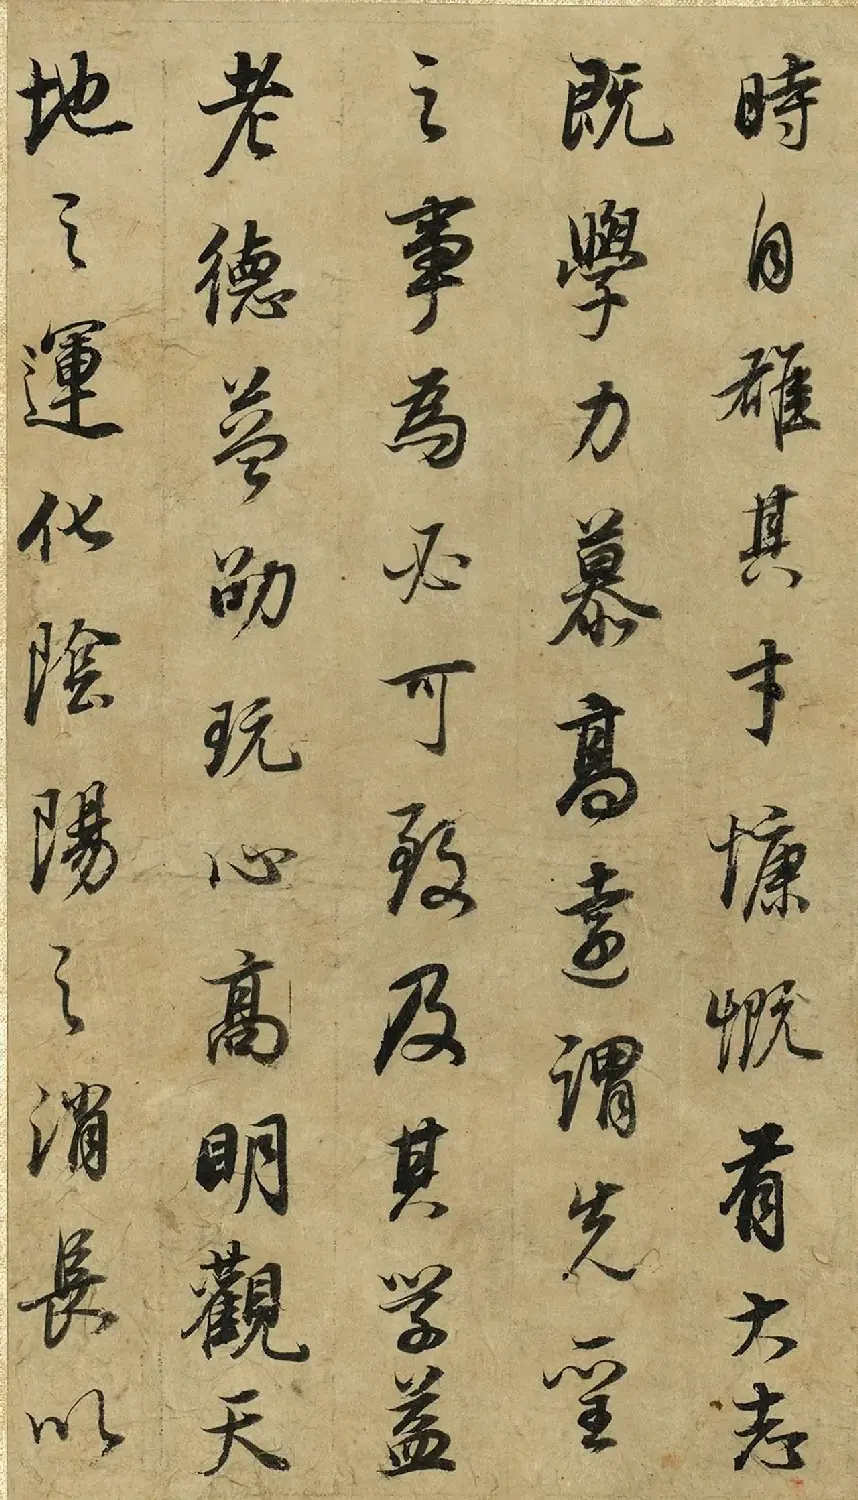 時自雄其才慷慨有大志
既學力慕高遠謂先聖
之事為必可致及其学益
老德益劭玩心高明觀天
地之運化陰陽之消長以